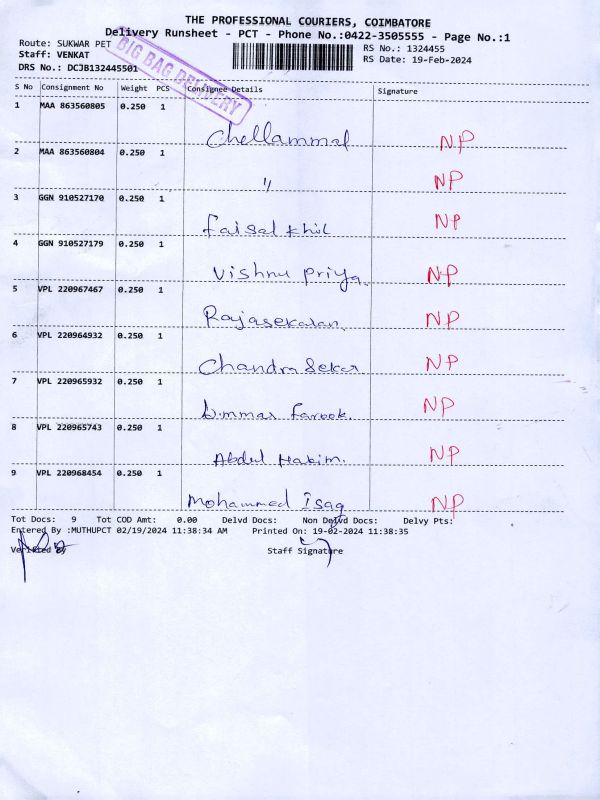 THE PROFESSIONAL COURIERS, COIMBATORE
Delivery Runsheet - PCT - Phone No.:0422-3505555 - Page No.:1
Route: SUKWAR PET
Staff: VENKAT
DRS No.: DCJB132445501
BIG BAG DELIVERY
RS No.: 1324455
RS Date: 19-Feb-2024
S No Consignment No Weight PCS Consignee Details Signature
1 MAA 863560805 0.250 1 Chellammal NP
2 MAA 863560804 0.250 1 " NP
3 GGN 910527170 0.250 1 Faisal khil NP
4 GGN 910527179 0.250 1 Vishnu Priya. NP
5 VPL 220967467 0.250 1 Rajasekaran. NP
6 VPL 220964932 0.250 1 Chandra Sekar NP
7 VPL 220965932 0.250 1 Ummar Farook. NP
8 VPL 220965743 0.250 1 Abdul Hakim. NP
9 VPL 220968454 0.250 1 Mohammed Isaq NP
Tot Docs: 9 Tot COD Amt: 0.00 Delvd Docs: Non Delvd Docs: Delvy Pts:
Entered By :MUTHUPCT 02/19/2024 11:38:34 AM Printed On: 19-02-2024 11:38:35
Verified By Staff Signature